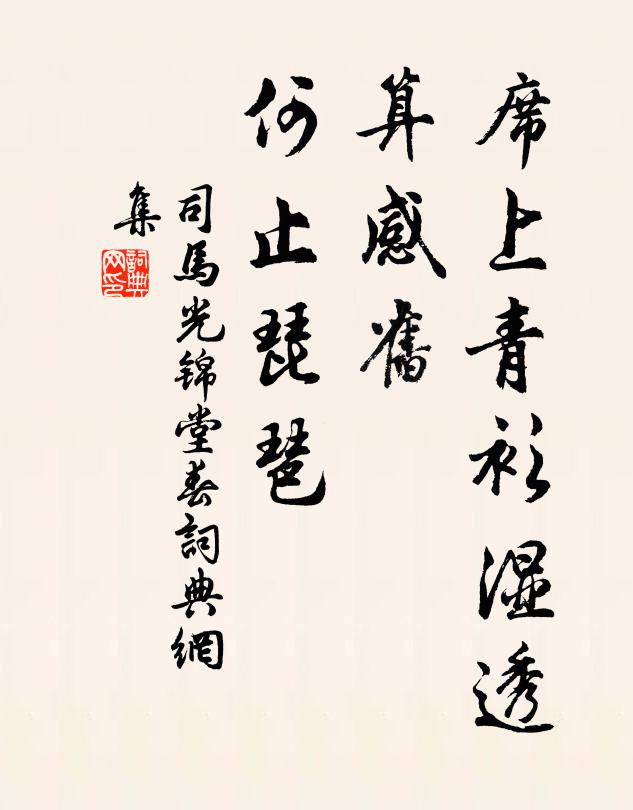 席上青衫湿透
算感舊
何止琵琶
司馬光錦堂春詞典網
集
詞典网印